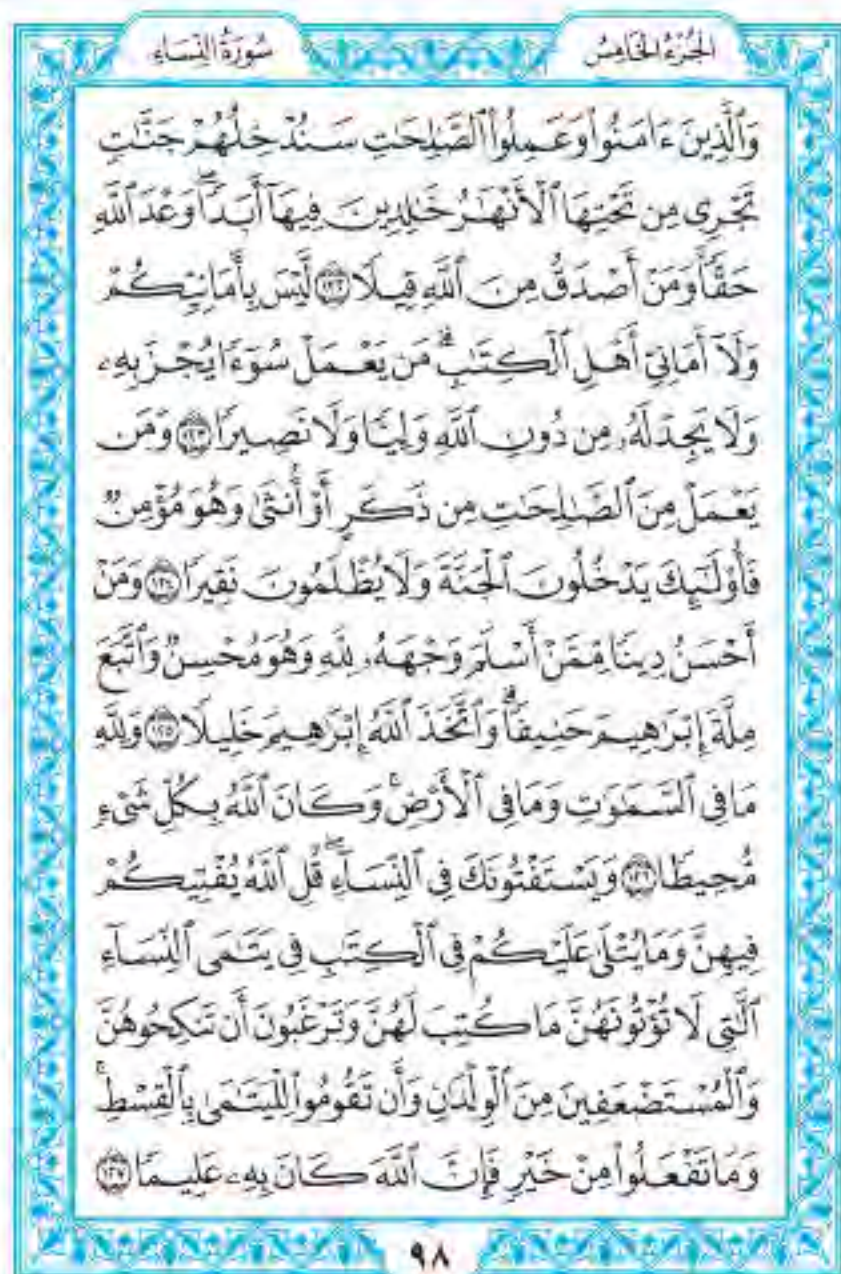 الجُزْءُ الخَامِسُ
سُورَةُ النِّسَاءِ
وَٱلَّذِينَ ءَامَنُواْ وَعَمِلُواْ ٱلصَّٰلِحَٰتِ سَنُدْخِلُهُمْ جَنَّٰتٍ
تَجْرِى مِن تَحْتِهَا ٱلْأَنْهَٰرُ خَٰلِدِينَ فِيهَآ أَبَدًا ۖ وَعْدَ ٱللَّهِ
حَقًّا ۚ وَمَنْ أَصْدَقُ مِنَ ٱللَّهِ قِيلًا ١٢٢ لَّيْسَ بِأَمَانِيِّكُمْ
وَلَآ أَمَانِىِّ أَهْلِ ٱلْكِتَٰبِ ۗ مَن يَعْمَلْ سُوٓءًا يُجْزَ بِهِۦ
وَلَا يَجِدْ لَهُۥ مِن دُونِ ٱللَّهِ وَلِيًّا وَلَا نَصِيرًا ١٢٣ وَمَن
يَعْمَلْ مِنَ ٱلصَّٰلِحَٰتِ مِن ذَكَرٍ أَوْ أُنثَىٰ وَهُوَ مُؤْمِنٌ
فَأُوْلَٰٓئِكَ يَدْخُلُونَ ٱلْجَنَّةَ وَلَا يُظْلَمُونَ نَقِيرًا ١٢٤ وَمَنْ
أَحْسَنُ دِينًا مِّمَّنْ أَسْلَمَ وَجْهَهُۥ لِلَّهِ وَهُوَ مُحْسِنٌ وَٱتَّبَعَ
مِلَّةَ إِبْرَٰهِيمَ حَنِيفًا ۗ وَٱتَّخَذَ ٱللَّهُ إِبْرَٰهِيمَ خَلِيلًا ١٢٥ وَلِلَّهِ
مَا فِى ٱلسَّمَٰوَٰتِ وَمَا فِى ٱلْأَرْضِ ۚ وَكَانَ ٱللَّهُ بِكُلِّ شَىْءٍ
مُّحِيطًا ١٢٦ وَيَسْتَفْتُونَكَ فِى ٱلنِّسَآءِ ۖ قُلِ ٱللَّهُ يُفْتِيكُمْ
فِيهِنَّ وَمَا يُتْلَىٰ عَلَيْكُمْ فِى ٱلْكِتَٰبِ فِى يَتَٰمَى ٱلنِّسَآءِ
ٱلَّٰتِى لَا تُؤْتُونَهُنَّ مَا كُتِبَ لَهُنَّ وَتَرْغَبُونَ أَن تَنكِحُوهُنَّ
وَٱلْمُسْتَضْعَفِينَ مِنَ ٱلْوِلْدَٰنِ وَأَن تَقُومُواْ لِلْيَتَٰمَىٰ بِٱلْقِسْطِ ۚ
وَمَا تَفْعَلُواْ مِنْ خَيْرٍ فَإِنَّ ٱللَّهَ كَانَ بِهِۦ عَلِيمًا ١٢٧
٩٨